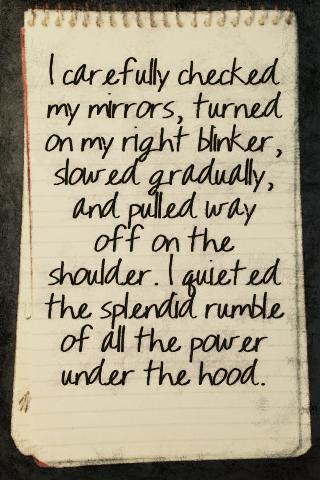 I carefully checked
my mirrors, turned
on my right blinker,
slowed gradually,
and pulled way
off on the
shoulder. I quieted
the splendid rumble
of all the power
under the hood.